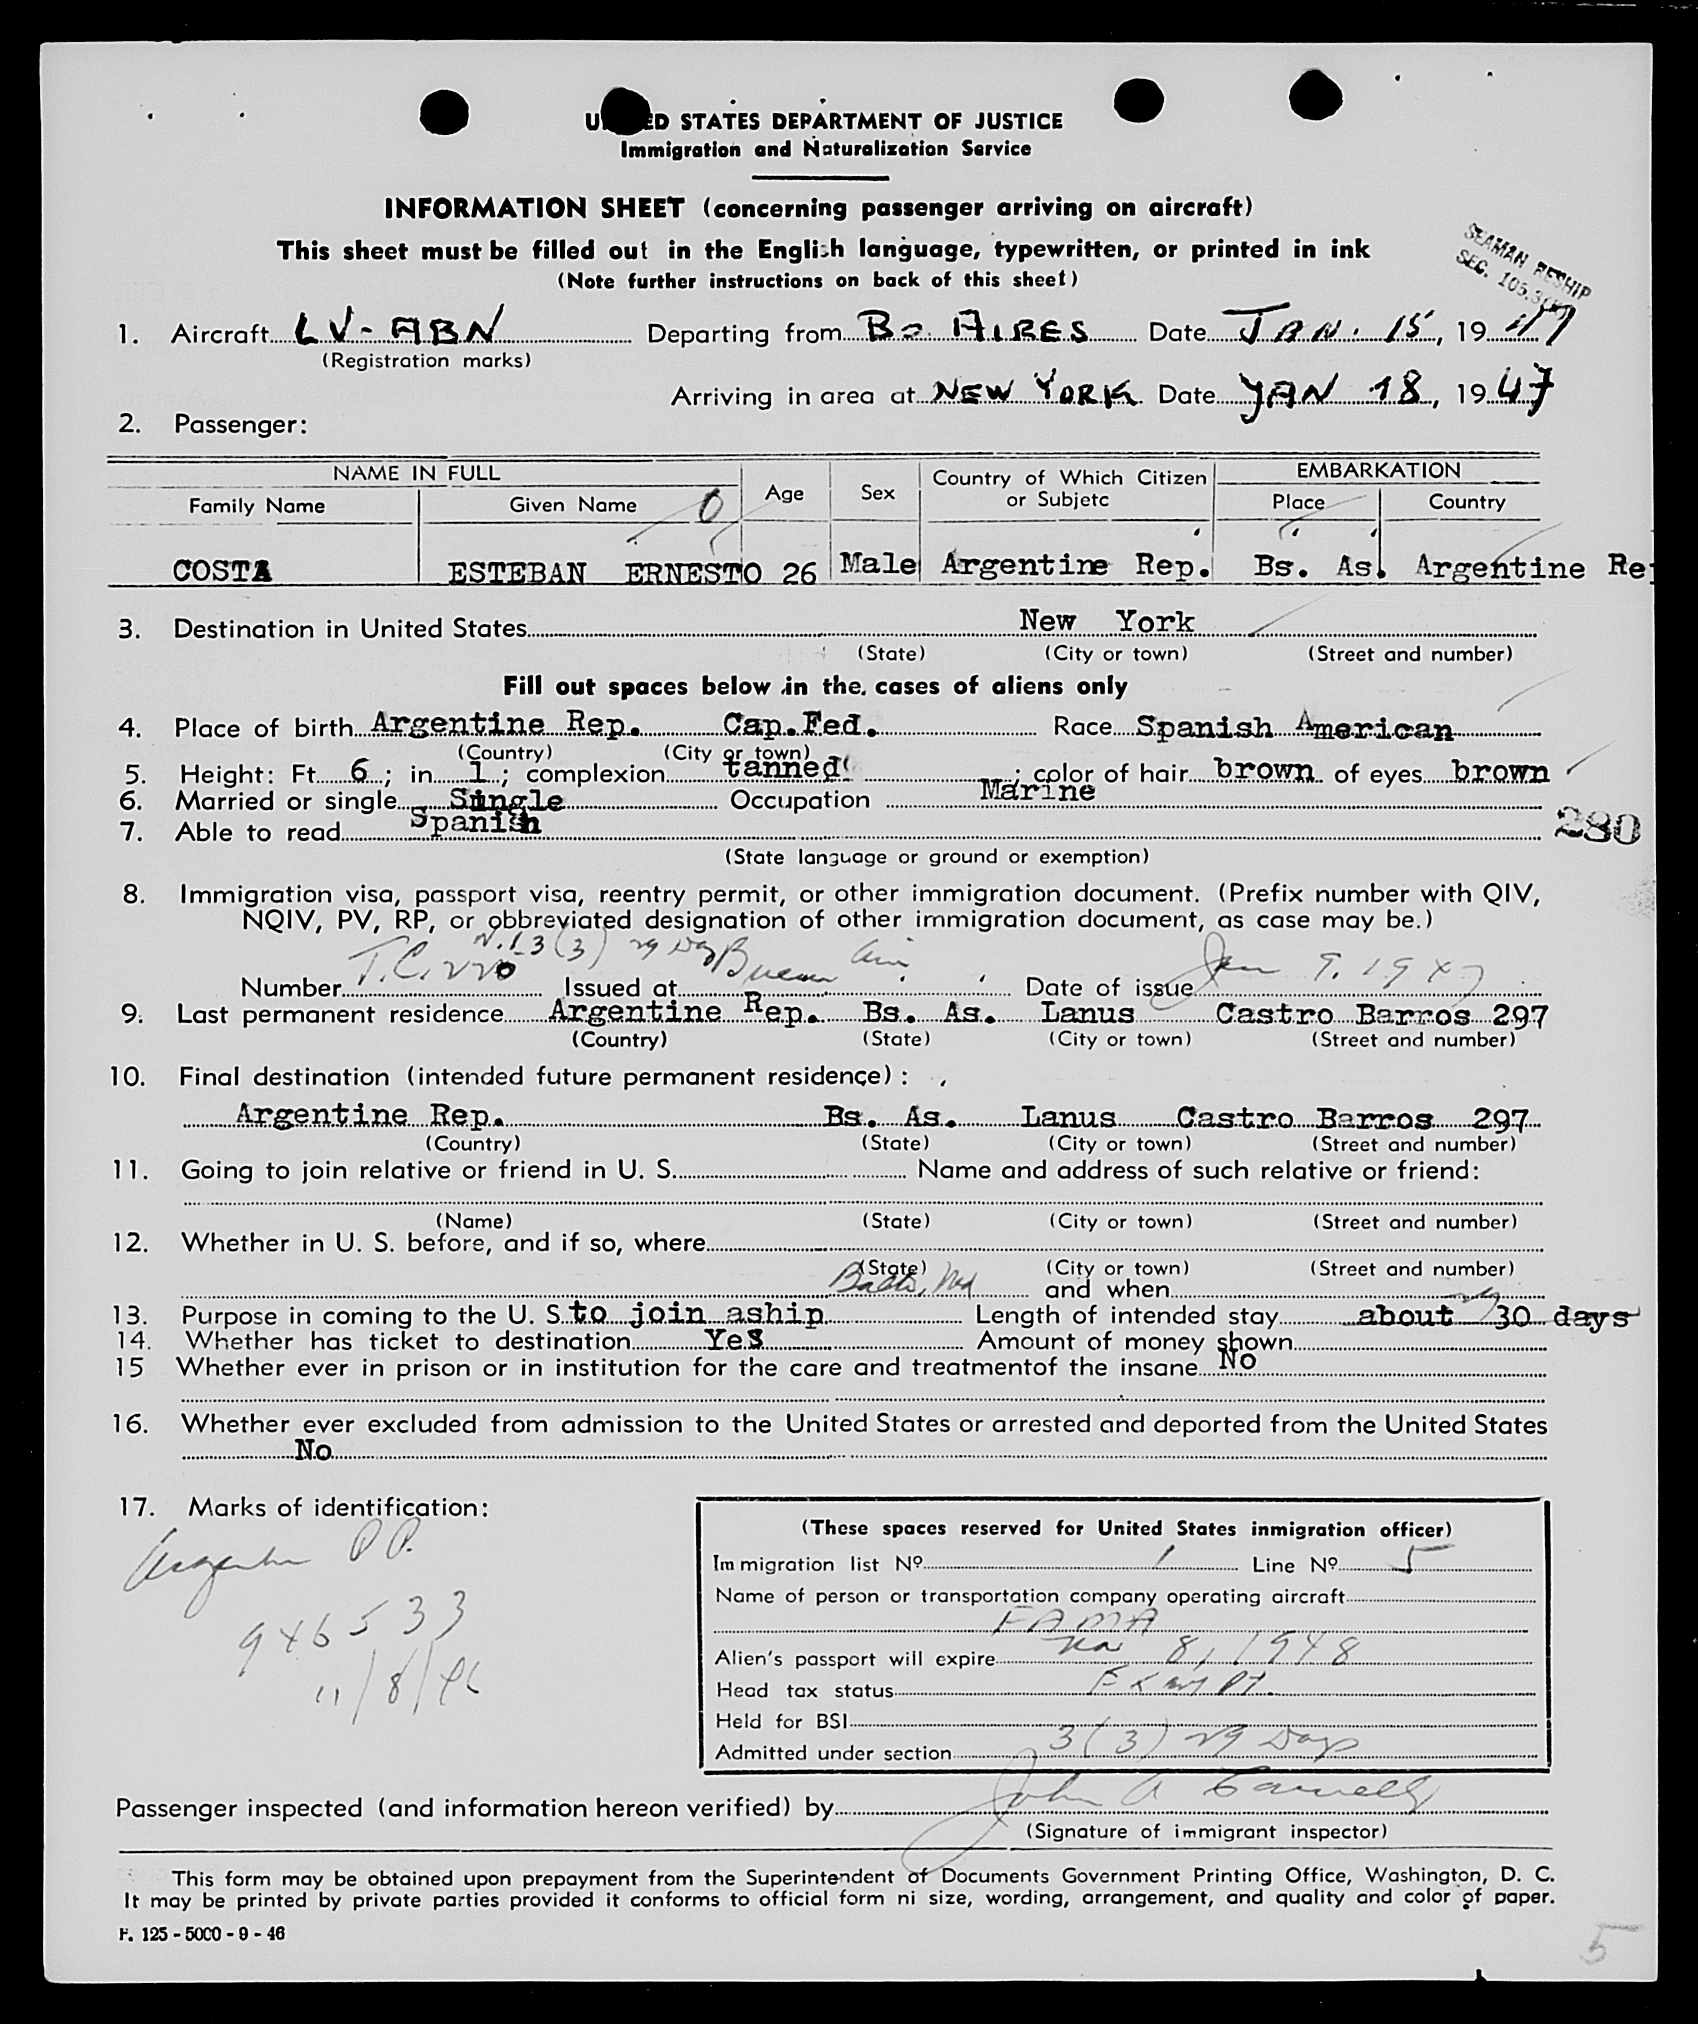 UNITED STATES DEPARTMENT OF JUSTICE
Immigration and Naturalization Service
INFORMATION SHEET (concerning passenger arriving on aircraft)
This sheet must be filled out in the English language, typewritten, or printed in ink
(Note further instructions on back of this sheet)
SEAMAN RESHIP
SEC. 105.3
1. Aircraft LV-ABN Departing from Bs. AIRES Date JAN. 15, 1947
(Registration marks)
Arriving in area at NEW YORK Date JAN 18, 1947
2. Passenger:
NAME IN FULL Age Sex Country of Which Citizen or Subjetc EMBARKATION
Family Name Given Name Place Country
COSTA ESTEBAN ERNESTO 26 Male Argentine Rep. Bs. As. Argentine Re
3. Destination in United States New York
(State) (City or town) (Street and number)
Fill out spaces below in the cases of aliens only
4. Place of birth Argentine Rep. Cap. Fed. Race Spanish American
(Country) (City or town)
5. Height: Ft. 6; in. 1; complexion tanned; color of hair brown of eyes brown
6. Married or single Single Occupation Marine
7. Able to read Spanish
280
(State language or ground or exemption)
8. Immigration visa, passport visa, reentry permit, or other immigration document. (Prefix number with QIV,
NQIV, PV, RP, or obbreviated designation of other immigration document, as case may be.)
3(3) 29 Day
Number T.C. 220 Issued at Buenos Date of issue Jan 9. 1947
9. Last permanent residence Argentine Rep. Bs. As. Lanus Castro Barros 297
(Country) (State) (City or town) (Street and number)
10. Final destination (intended future permanent residence):
Argentine Rep. Bs. As. Lanus Castro Barros 297
(Country) (State) (City or town) (Street and number)
11. Going to join relative or friend in U. S. Name and address of such relative or friend:
(Name) (State) (City or town) (Street and number)
12. Whether in U. S. before, and if so, where
(State) (City or town) (Street and number)
Balto, Md and when
13. Purpose in coming to the U. S. to join aship Length of intended stay about 30 days
29
14. Whether has ticket to destination Yes Amount of money shown
15 Whether ever in prison or in institution for the care and treatmentof the insane No
16. Whether ever excluded from admission to the United States or arrested and deported from the United States
No
17. Marks of identification:
Argentin P.P.
946533
11/8/46
(These spaces reserved for United States inmigration officer)
Immigration list Nº 1 Line Nº 5
Name of person or transportation company operating aircraft
FAMA
Alien's passport will expire 8, 1948
Head tax status Exempt
Held for BSI
Admitted under section 3(3) 29 Days
Passenger inspected (and information hereon verified) by John A
(Signature of immigrant inspector)
This form may be obtained upon prepayment from the Superintendent of Documents Government Printing Office, Washington, D. C.
It may be printed by private parties provided it conforms to official form ni size, wording, arrangement, and quality and color of paper.
F. 125 - 5000 - 9 - 46
5